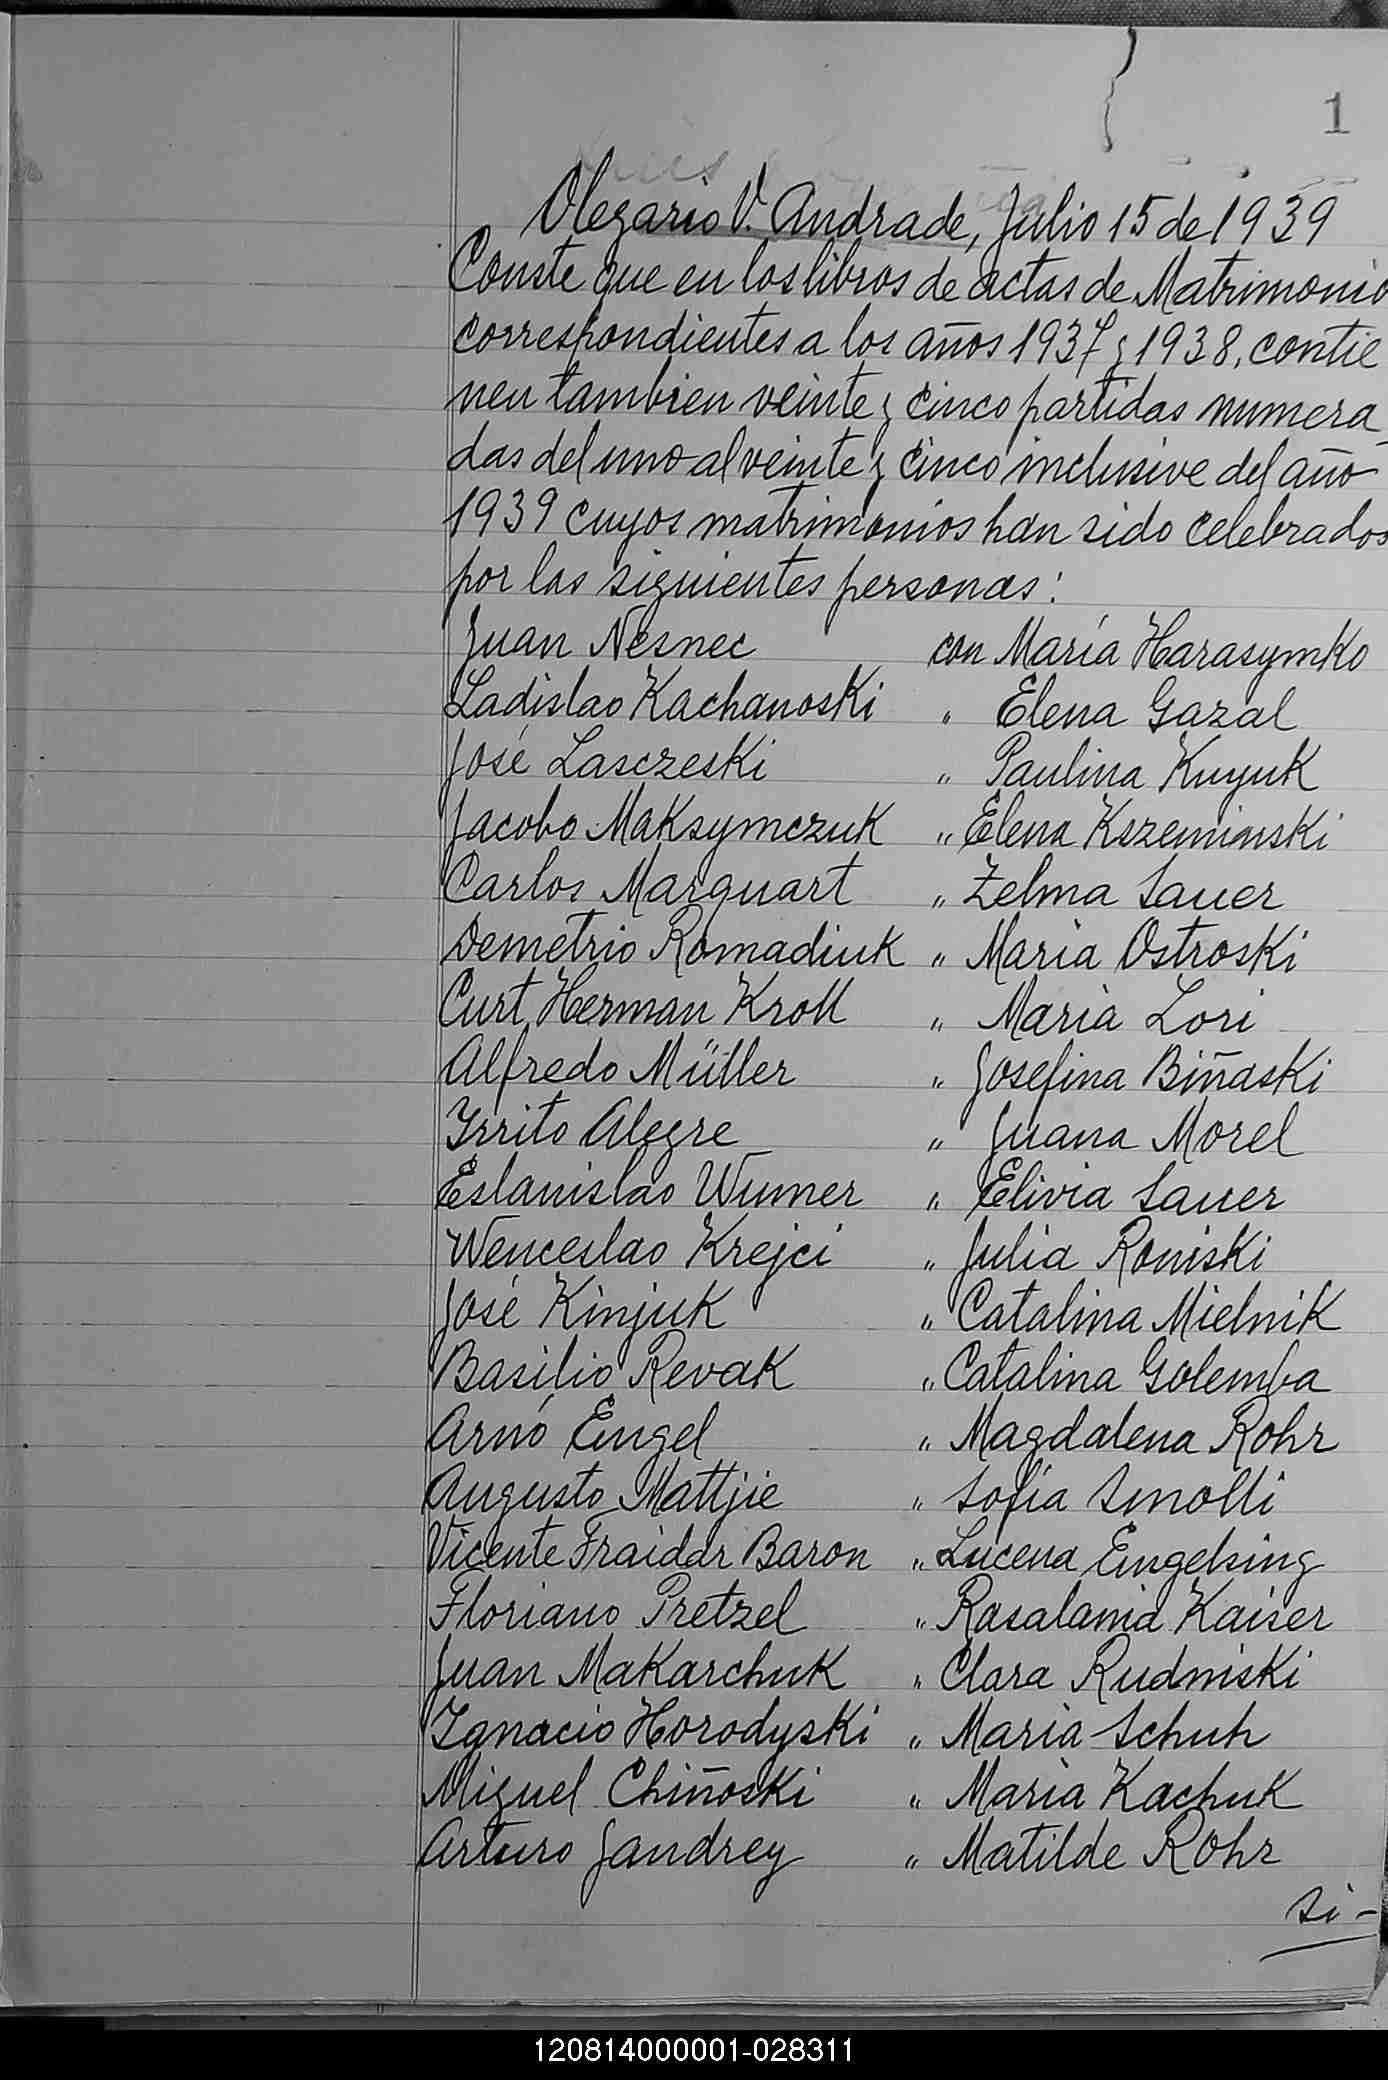 1
Olegario V. Andrade, Julio 15 de 1939
Conste que en los libros de actas de Matrimonio
correspondientes a los años 1937 y 1938, contie
nen tambien veinte y cinco partidas numera-
das del uno al veinte y cinco inclusive del año
1939 cuyos matrimonios han sido celebrados
por las siguientes personas:
Juan Nesnec con María Harasymko
Ladislao Kachanoski " Elena Gazal
José Lasczeski " Paulina Kuyuk
Jacobo Maksymczuk " Elena Kszeminski
Carlos Marquart " Zelma Sauer
Demetrio Romadiuk " Maria Ostroski
Curt Herman Kroll " Maria Lori
Alfredo Müller " Josefina Biñaski
Irrito Alegre " Juana Morel
Eslanislao Wumer " Elivia Sauer
Wenceslao Krejci " Julia Roniski
José Kinjuk " Catalina Mielnik
Basilio Revak " Catalina Golemba
Arno Engel " Magdalena Rohr
Augusto Mattjie " Sofía Smolli
Vicente Fraider Baron " Lucena Engelsing
Floriano Pretzel " Rasalania Kaiser
Juan Makarchuk " Clara Rudniski
Ignacio Horodyski " Maria Schuh
Miguel Chiñoski " Maria Kachuk
Arturo Jandrey " Matilde Rohr
si-
120814000001-028311